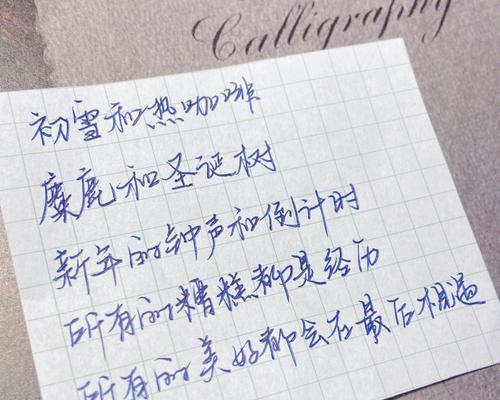 Calligraphy
初雪和热咖啡
麋鹿和圣诞树
新年的钟声和倒计时
所有的糟糕都是经历
所有的美好都会在最后相遇